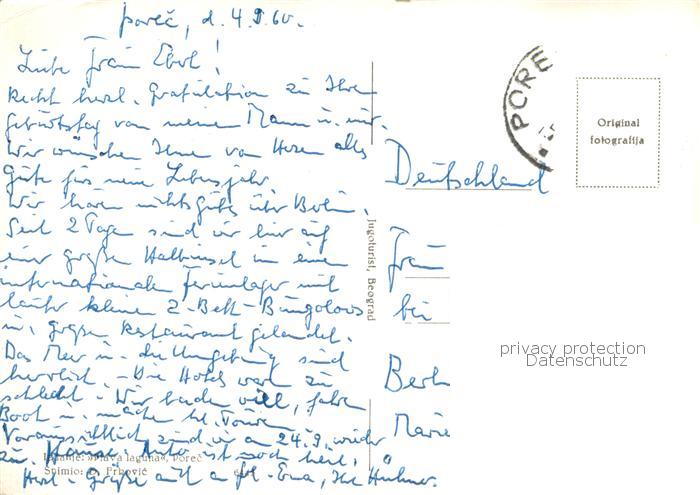 Poreč, d. 4.9.60.
Liebe Frau Ebel!
Recht herzl. Gratulation zu Ihrem
Geburtstag von meinem Mann u. mir.
Wir wünschen Ihnen von Herzen alles
Gute für's neue Lebensjahr.
Wir hören nichts Gutes über Berlin.
Seit 2 Tagen sind wir hier auf
einer großen Halbinsel in einem
internationalen Ferienlager mit
lauter kleinen 2-Bett-Bungalows
u. großem Restaurant gelandet.
Das Meer u. die Umgebung sind
herrlich. - Die Hotels waren zu
schlecht. - Wir baden viel, fahren
Boot u. machen kl. Touren.
Voraussichtlich sind wir am 24.9. wieder
zu Hause. Auto ist noch heil.
Herzl. Grüße auch an Frl. Erna, Ihre Hühner.
PORE
Original
fotografija
Deutschland
Frau
bei
Berlin
Marie
Jugoturist, Beograd
Izdanje: »Plava laguna«, Poreč
Snimio: D. Frković
privacy protection
Datenschutz